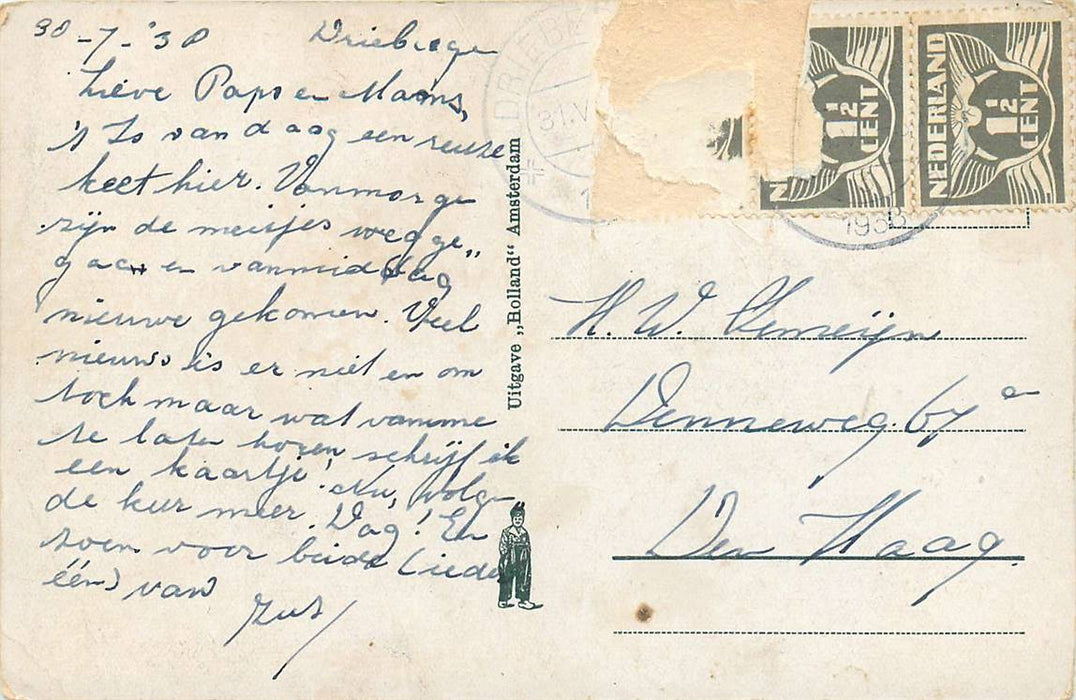 30-7-'38 Driebergen
Lieve Paps en Mams,
't Is vandaag een reuze
keet hier. Vanmorge
zijn de meisjes wegge„
gaan en vanmiddag
nieuwe gekomen. Veel
nieuws is er niet en om
toch maar wat van me
te laten horen schrijf ik
een kaartje! Nu, volge
de keer meer. Dag! En
zoen voor beide (ieder
één) van
Zus
Uitgave „Holland" Amsterdam
DRIEB
31.V
1938
NEDERLAND
1½
CENT
1½
CENT
H. W.
Denneweg 67a
Den Haag.